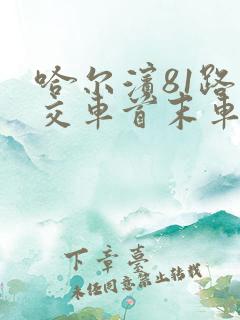 哈尔滨81路
交车首末车
下章蔓
未经同意禁止转载